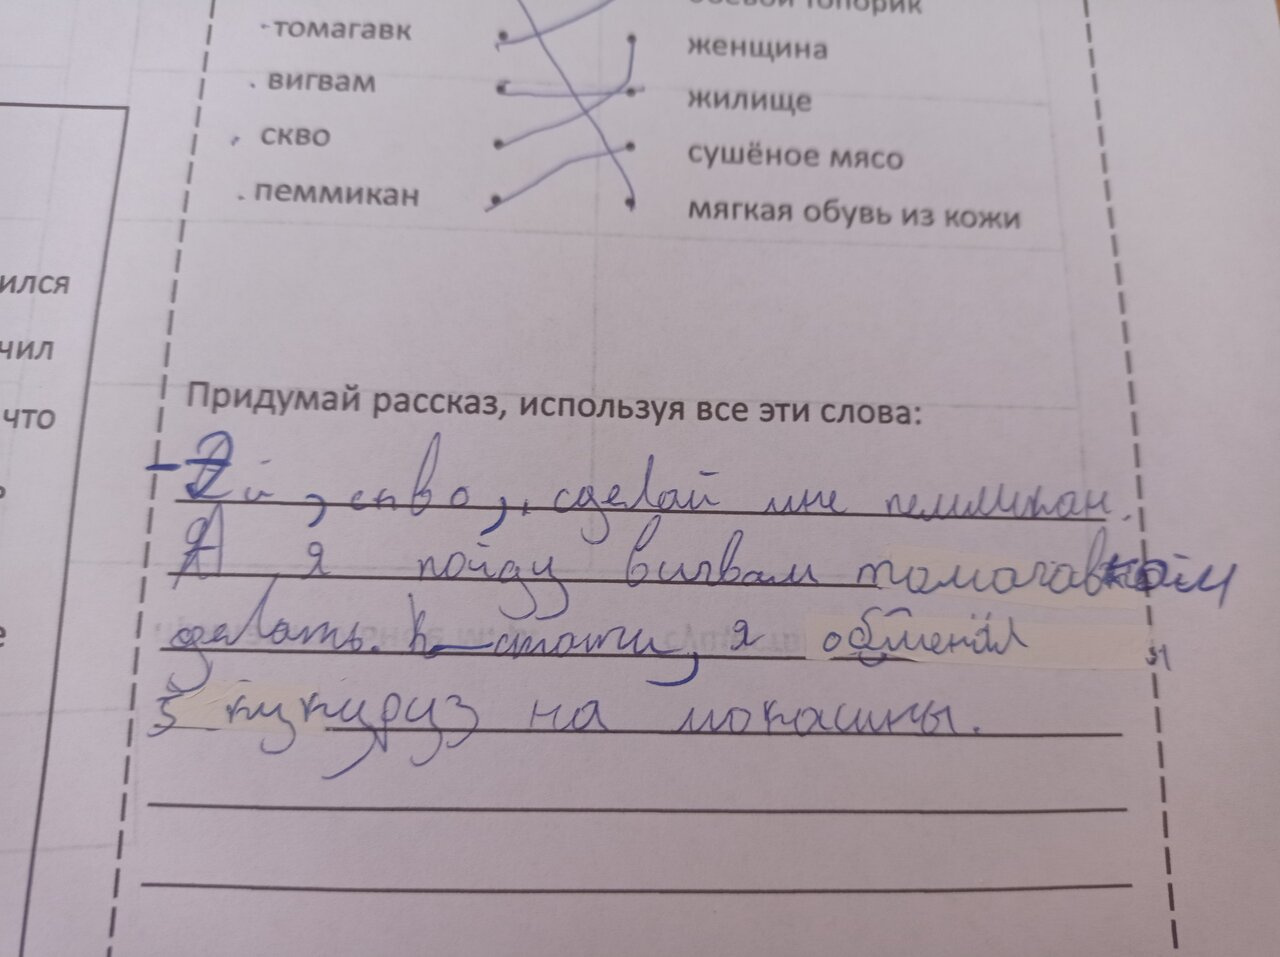 боевой топорик
томагавк
женщина
вигвам
жилище
скво
сушёное мясо
пеммикан
мягкая обувь из кожи
ился
чил
что
Придумай рассказ, используя все эти слова:
- Эй, скво, сделай мне пеммикан.
А я пойду вигвам томагавком
делать. К стати, я обменял
5 кукуруз на мокасины.